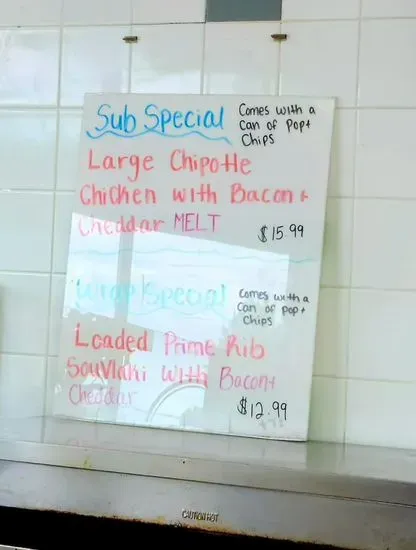 Sub Special
Comes with a
Can of Pop+
Chips
Large Chipotle
Chicken with Bacon +
Cheddar MELT
$15.99
Wrap Special
Comes with a
Can of pop +
Chips
Loaded Prime Rib
Souvlaki with Bacon+
Cheddar
$12.99
CAUTION HOT